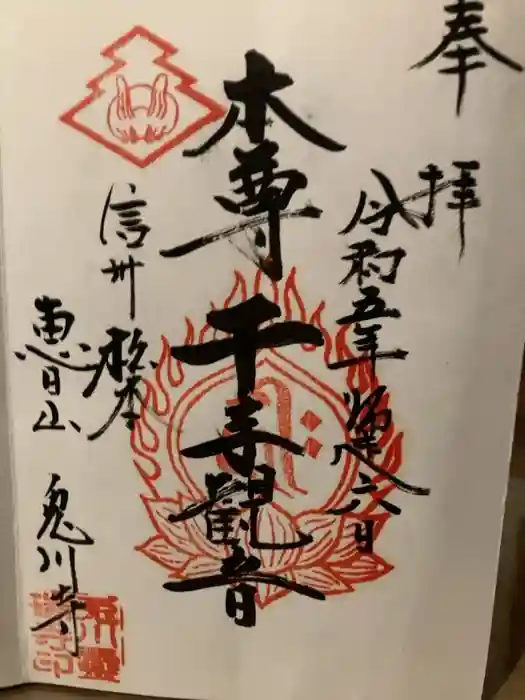 奉拝
令和五年師走六日
本尊千手観音
信州松本
恵日山
兎川寺